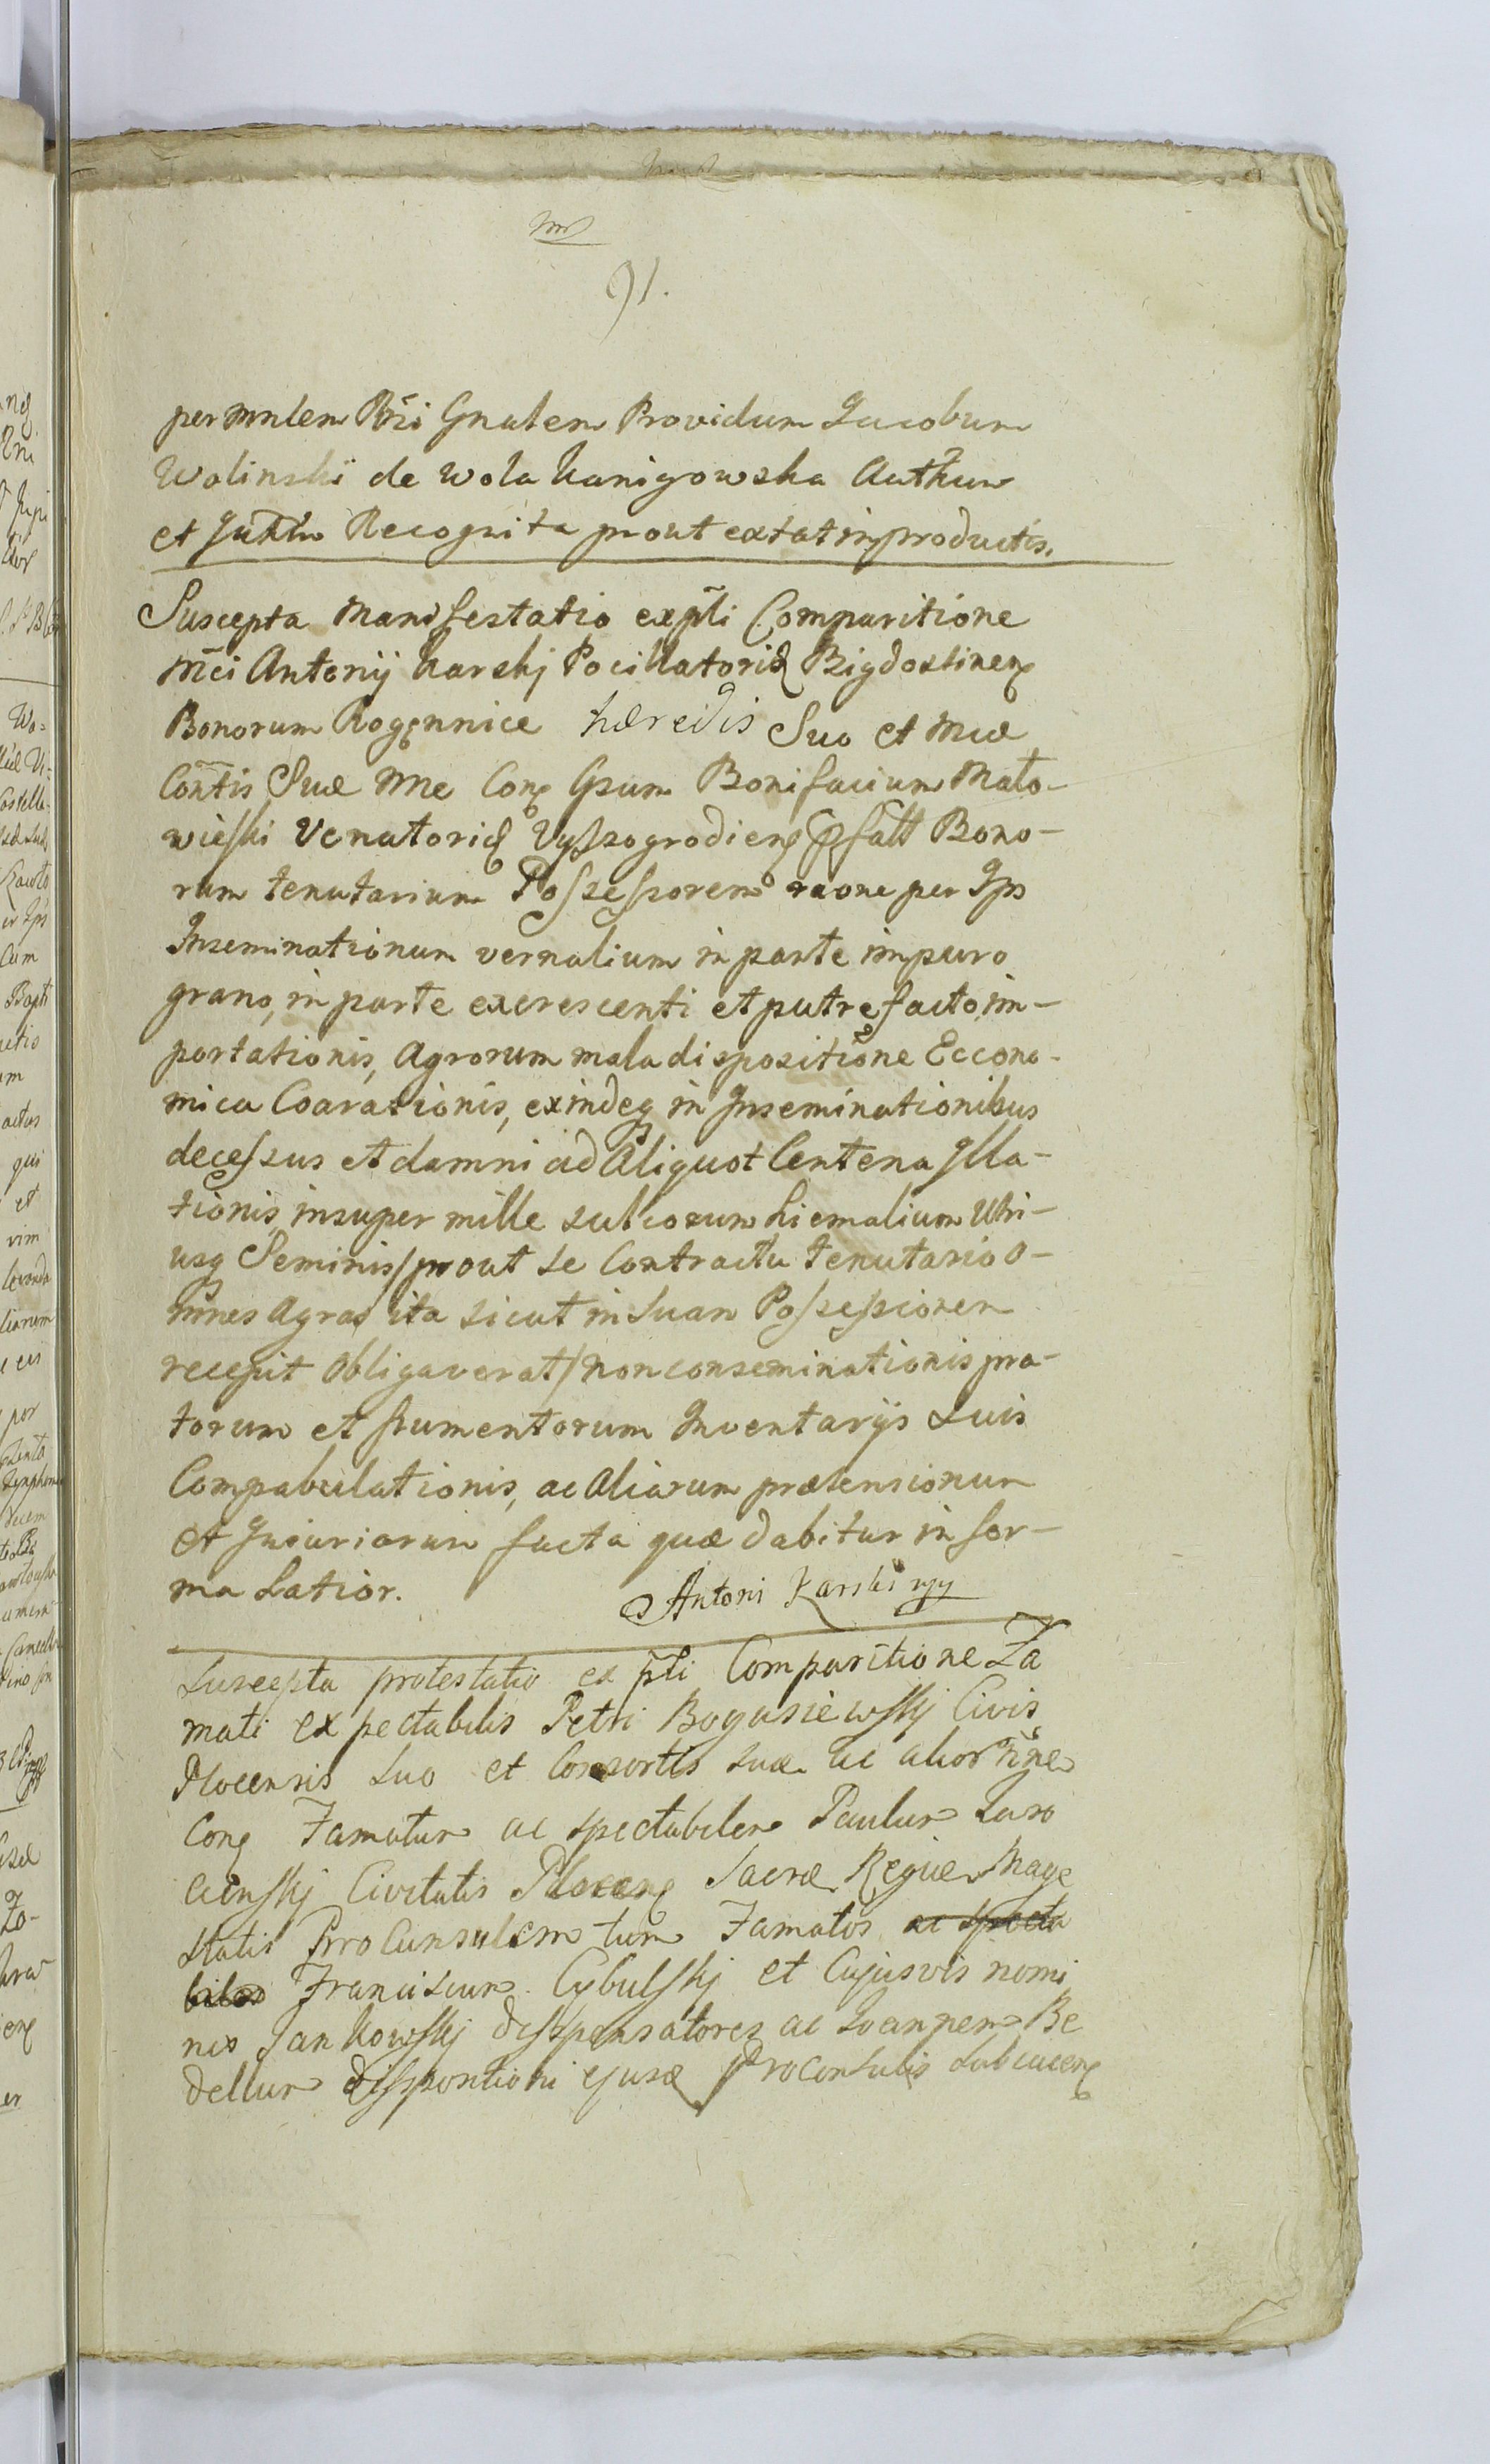 91.
per Mnlem Rni Gnalem Providum Jacobum
Wolinski de Wola Kanigowska Authum
et Juttu Recognita prout extat in productis.
Suscepta Manifestatio ex pñti Comparitione
Mci Antonij Karskj Pocillatorid Bigdostineng
Bonorum Rogennice hæredis Suo et Mcæ
Contis Suæ Nne Cong Gsum Bonifacium Mato-
wieski Venatorid Wyszogrodieng Psatt Bono-
rum tenutarium Possessorem raone per Ips
Inseminationum vernalium in parte impuro
grano, in parte excrescenti et putrefacto, im-
portationis, Agrorum mala dispositione Eccono-
mica Coarationis, exindeq in Inseminationibus
decessus et damni ad Aliquot Centena Illa-
tionis, insuper mille sulcorum hiemalium Utri-
usq Seminis / prout se Contractu tenutario o-
mnes Agros ita sicut in suam Possessionem
recepit Obligaverat / non conseminationis pra-
torum et frumentorum Inventarijs suis
Compabulationis, ac Aliarum prætensionum
et Injuriarum facta quæ dabitur in for-
ma Latior.
Antoni Karski mpp
Suscepta protestatio ex pñti Comparitione Fa
mati expectabilis Petri Bogusiewskj Civis
Plocensis suo et Consortis suæ ac alior nñe
Cong Famatum ac spectabilem Paulum Laso
cienskj Civitatis Ploceng Sacræ Regiæ Maje
statis ProConsulem tum Famatos ac specta
biles Franciscum Cybulskj et Cujusvis nomi
nis Jankowskj dispensatores ac Ioannem Be
dellum dispositioni ejusd ProConsulis subiaceng